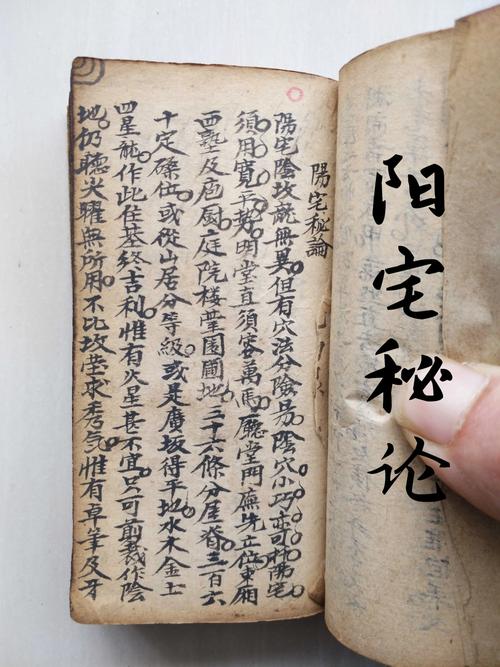 陽宅秘論
陽宅陰坟龍無異。但有穴法分險易。陰穴小巧亦可。陽宅
須用寬平勢。明堂直須容萬馬。廳堂門廡先立位。東廂
西塾及庖厨。庭院楼臺園圃地。三十六條分屋脊。三百六
十定磉位。或從山居分等級。或是廣坂得平地。水木金土
四星龍。作此住基終吉利。惟有火星甚不宜。只可剪裁作陰
地。仍聽尖曜無所用。不比坟塋求秀氣。惟有草筆及牙
阳宅秘论